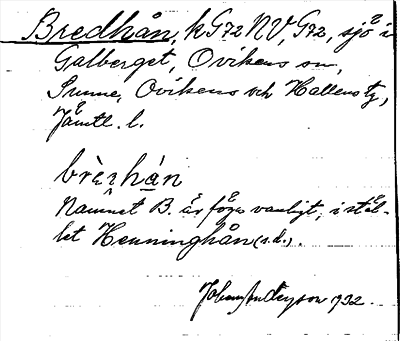 Bredhån, k G72 NV, G92, sjö i
Galberget, Ovikens sn,
Sunne, Ovikens och Hallens tg,
Jämtl. l.
brèzhán
Namnet B. är föga vanligt, i stäl-
let Henninghån (s.d.).
1932.